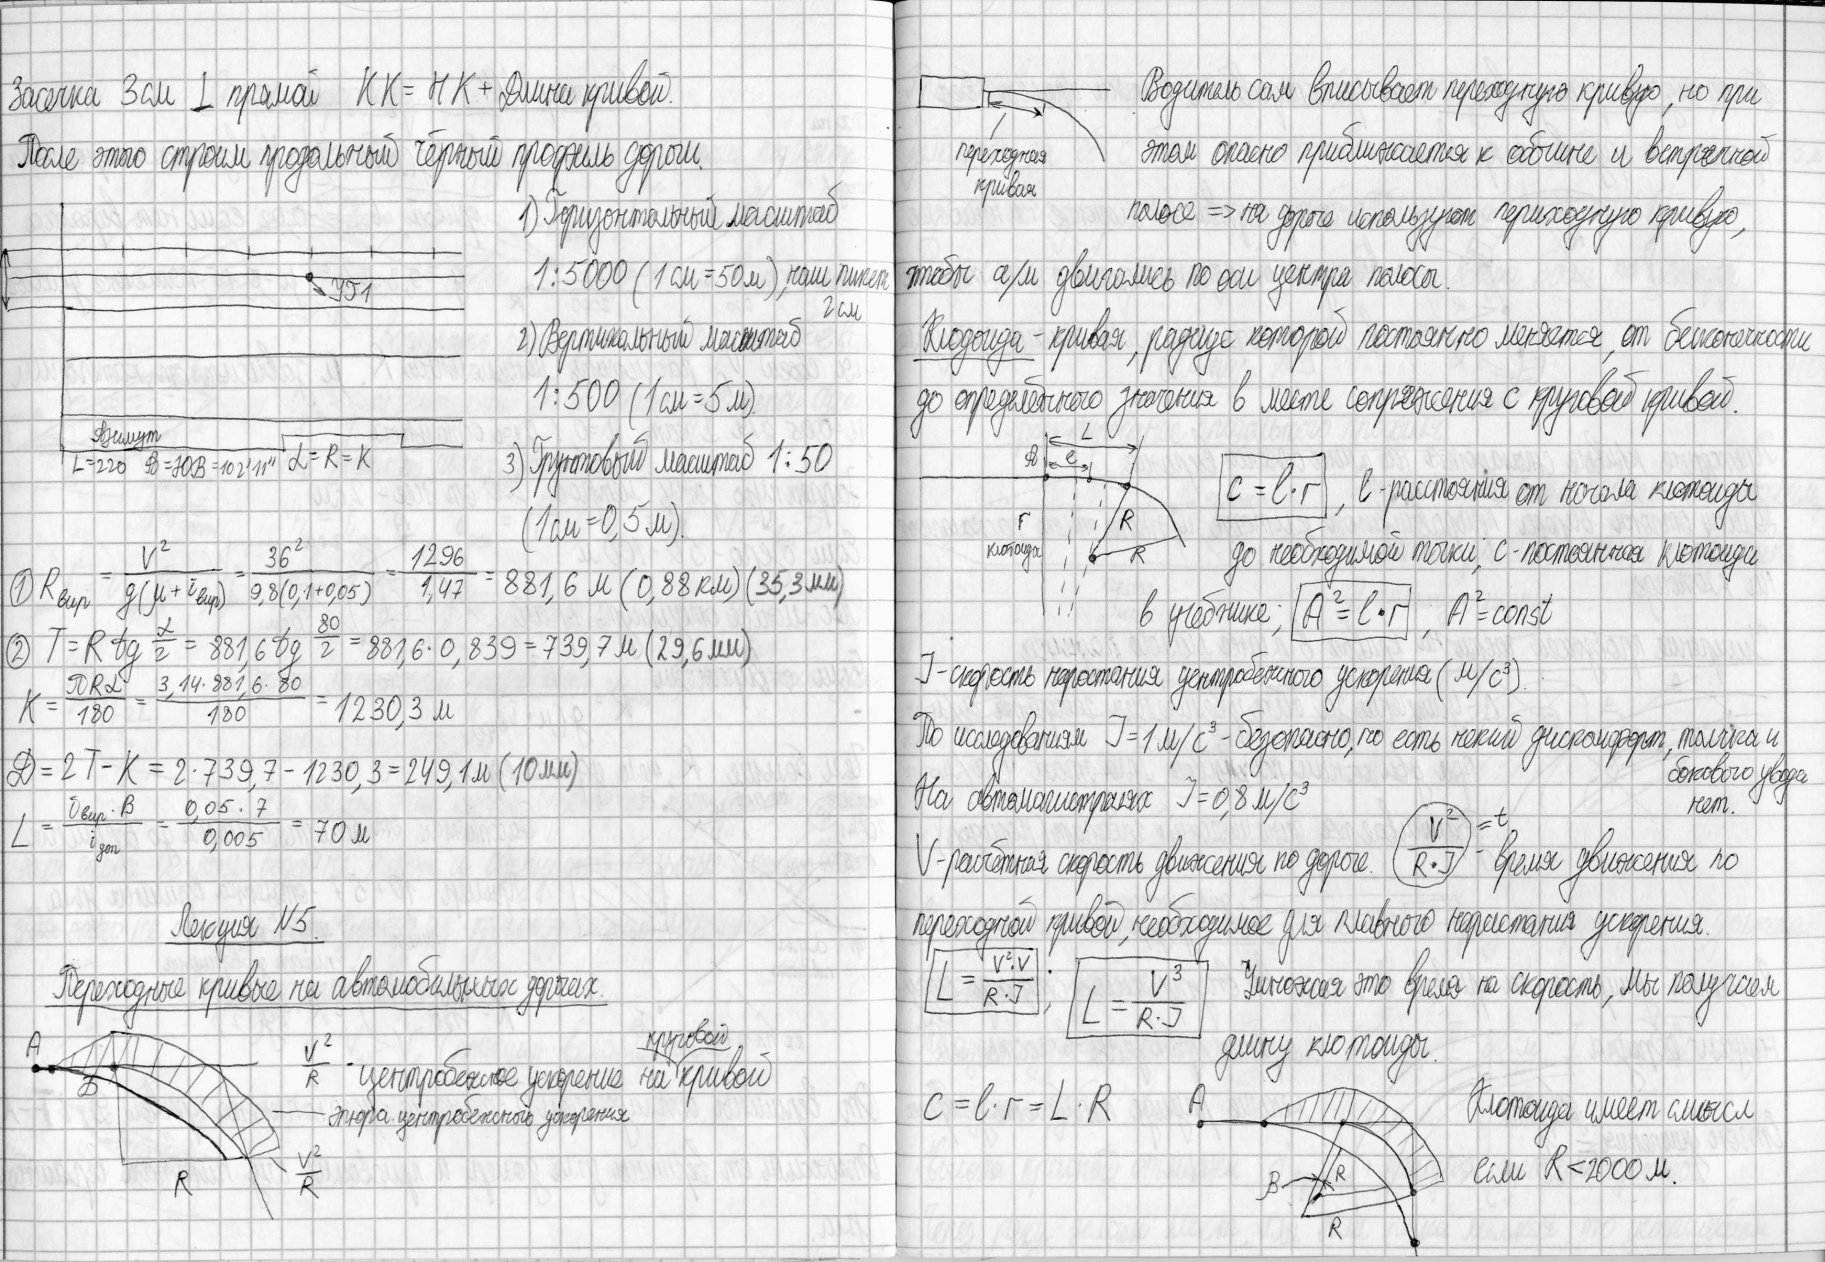 Засечка 3 см ⊥ прямой КК = НК + Длина кривой.
После этого строим продольный чёрный профиль дороги.
1) Горизонтальный масштаб
1:5000 (1 см = 50 м), наш пикет
2 см
2) Вертикальный масштаб
1:500 (1 см = 5 м).
3) Грунтовый масштаб 1:50
(1 см = 0,5 м).
УГ1
Азимут
L=220 В=ЮВ=102°11" α=R=K
① Rвир = V²/g(μ+iвир) = 36²/9,8(0,1+0,05) = 1296/1,47 = 881,6 м (0,88 км) (35,3 мм)
② T = R tg α/2 = 881,6 tg 80/2 = 881,6·0,839 = 739,7 м (29,6 мм)
K = πRα/180 = 3,14·881,6·80/180 = 1230,3 м
Д = 2T - K = 2·739,7 - 1230,3 = 249,1 м (10 мм)
L = iвир·B/iдоп = 0,05·7/0,005 = 70 м
Лекция N5.
Переходные кривые на автомобильных дорогах.
A
Б
R
круговой
V²/R - центробежное ускорение на кривой
эпюра центробежного ускорения
V²/R
переходная
кривая
Водитель сам вписывает переходную кривую, но при
этом опасно приближается к обочине и встречной
полосе => на дороге используют переходную кривую,
чтобы а/м двигались по оси центра полосы.
Клодоида - кривая, радиус которой постоянно меняется, от бесконечности
до определённого значения в месте сопряжения с круговой кривой.
L
A e
r
клотоида
R
R
c = l·r, l - расстояния от начала клотоиды
до необходимой точки; c - постоянная клотоиды
в учебнике; A² = l·r ; A² = const
J - скорость наростания центробежного ускорения (м/с³).
По исследованиям J = 1 м/с³ - безопасно, но есть некий дискомфорт, толчка и
бокового увода
нет.
На автомагистралях J = 0,8 м/с³
V - расчётная скорость движения по дороге. V²/R·J = t - время движения по
переходной кривой, необходимое для плавного нарастания ускорения.
L = V²·V/R·J ; L = V³/R·J Умножая это время на скорость, мы получаем
длину клотоиды.
c = l·r = L·R
A
B
R
R
Клотоида имеет смысл
если R < 2000 м.